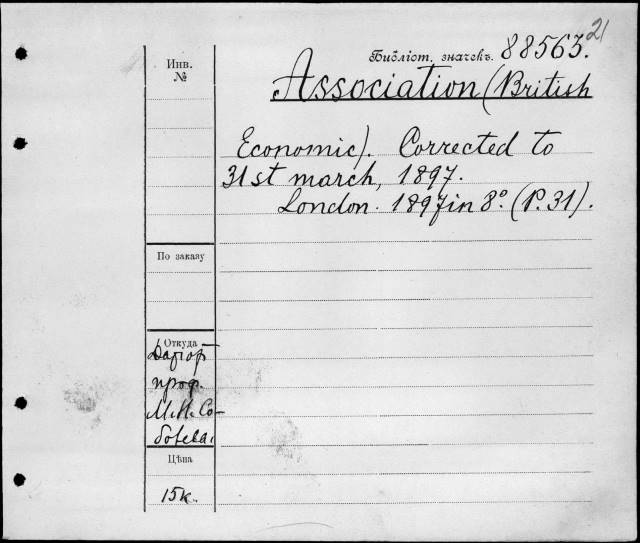 21
Библіот. значекъ. 88563.
Инв.
№
Association (British
Economic). Corrected to
31st march, 1897.
London. 1897 in 8º. (P. 31).
По заказу
Откуда
проф.
М. Н. Со-
болева.
Цѣна
15к.